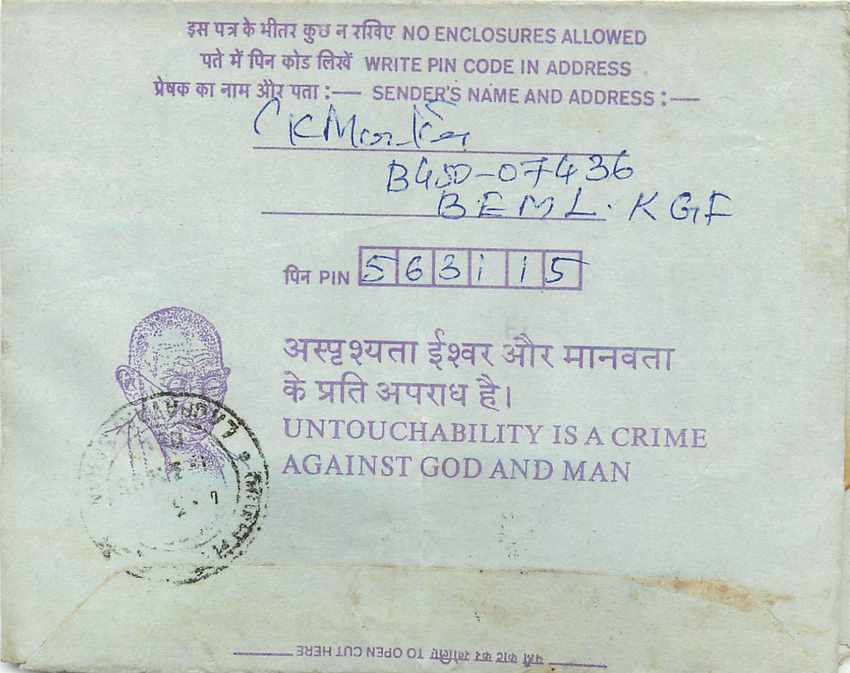 इस पत्र के भीतर कुछ न रखिए NO ENCLOSURES ALLOWED
पते में पिन कोड लिखें WRITE PIN CODE IN ADDRESS
प्रेषक का नाम और पता :— SENDER'S NAME AND ADDRESS :—
CKMartin
B450-07436
BEML. KGF
पिन PIN 563115
अस्पृश्यता ईश्वर और मानवता
के प्रति अपराध है।
UNTOUCHABILITY IS A CRIME
AGAINST GOD AND MAN
यहाँ काट कर खोलिए TO OPEN CUT HERE